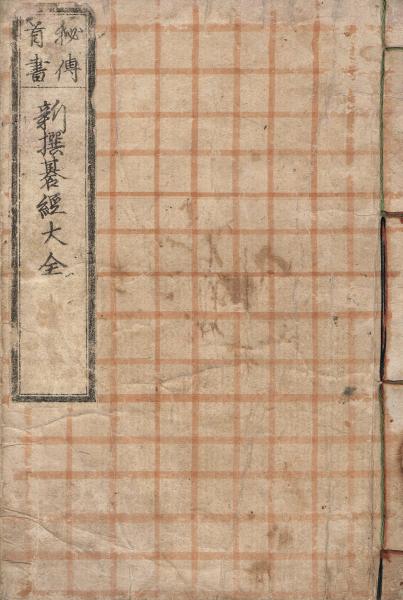 秘傳
首書
新撰碁經大全